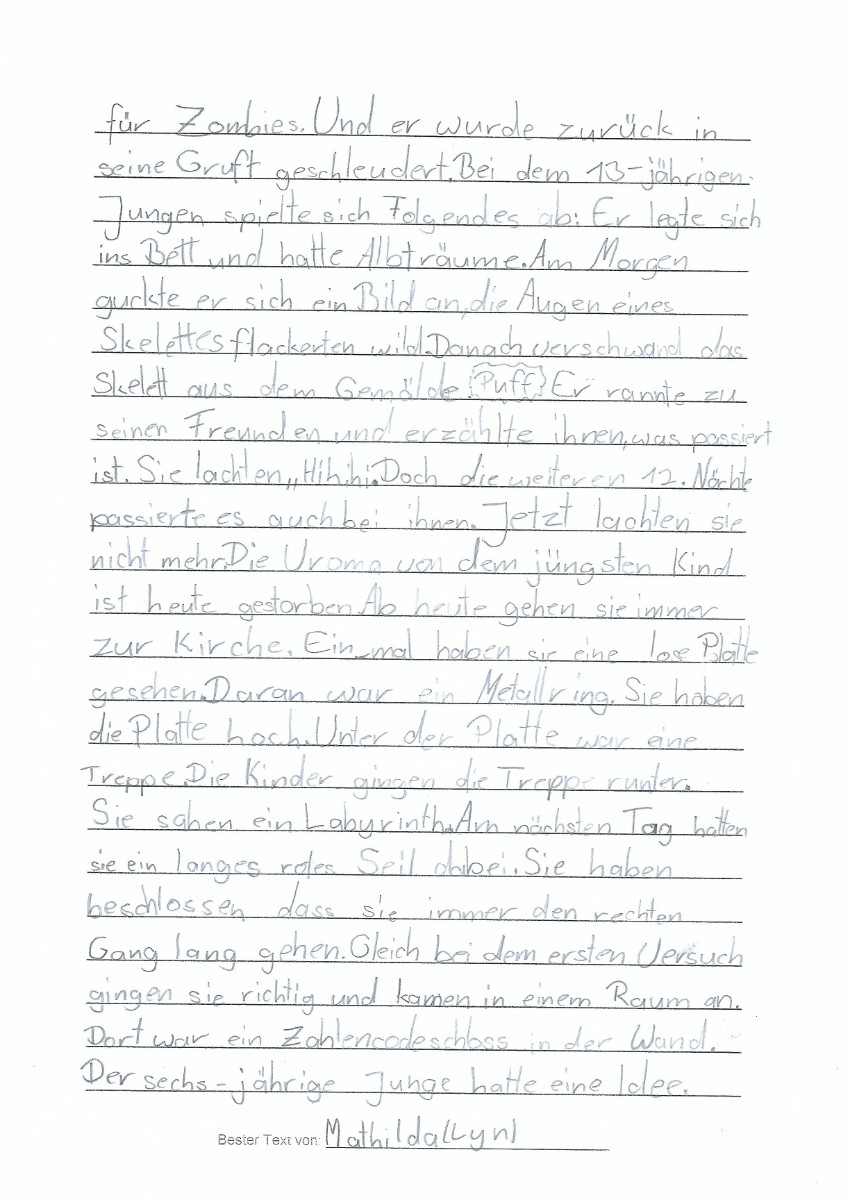 für Zombies. Und er wurde zurück in
seine Gruft geschleudert. Bei dem 13-jährigen
Jungen spielte sich Folgendes ab: Er legte sich
ins Bett und hatte Albträume. Am Morgen
guckte er sich ein Bild an, die Augen eines
Skelettes flackerten wild. Danach verschwand das
Skelett aus dem Gemälde {Puff} Er rannte zu
seinen Freunden und erzählte ihnen, was passiert
ist. Sie lachten „Hihihi. Doch die weiteren 12. Nächte
passierte es auch bei ihnen. Jetzt lachten sie
nicht mehr. Die Uroma von dem jüngsten Kind
ist heute gestorben. Ab heute gehen sie immer
zur Kirche. Ein_mal haben sie eine lose Platte
gesehen. Daran war ein Metallring. Sie hoben
die Platte hoch. Unter der Platte war eine
Treppe. Die Kinder gingen die Treppe runter.
Sie sahen ein Labyrinth. Am nächsten Tag hatten
sie ein langes rotes Seil dabei. Sie haben
beschlossen dass sie immer den rechten
Gang lang gehen. Gleich bei dem ersten Versuch
gingen sie richtig und kamen in einem Raum an.
Dort war ein Zahlencodeschloss in der Wand.
Der sechs-jährige Junge hatte eine Idee.
Bester Text von: Mathilda (Lyn)